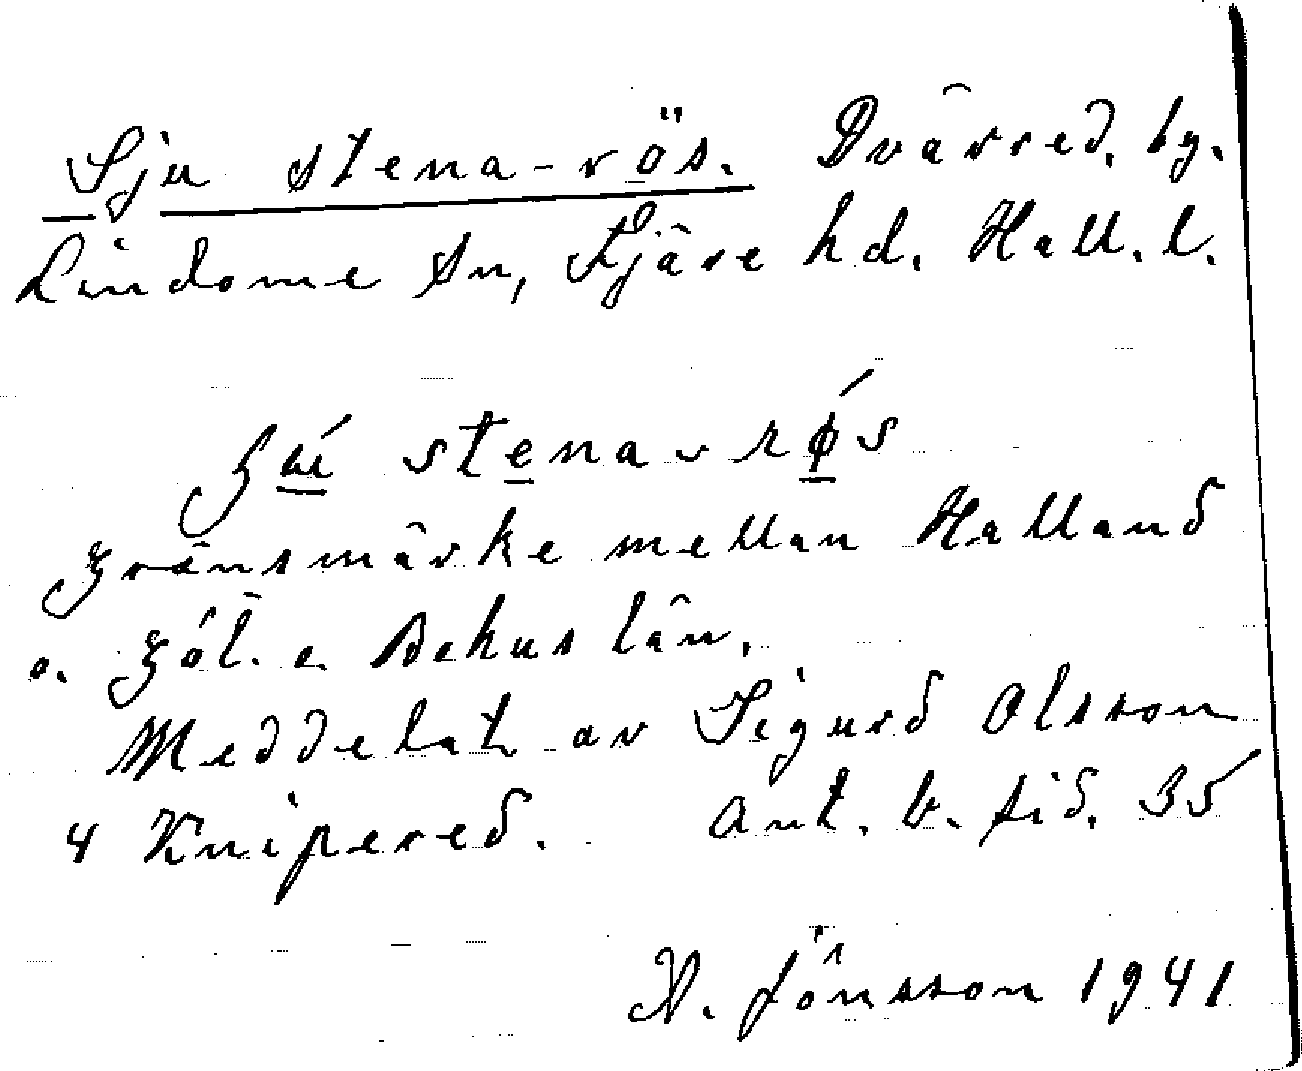 Sju stena-rös. Dvärred. by.
Lindome sn, Fjäre hd. Hall. l.
stena rǿ̱s
Gränsmärke mellan Halland
o. Göt. o. Bohus län.
Meddelat av Sigurd Olsson
4 Knipered. Ant. b. sid. 35
N. Jönsson 1941